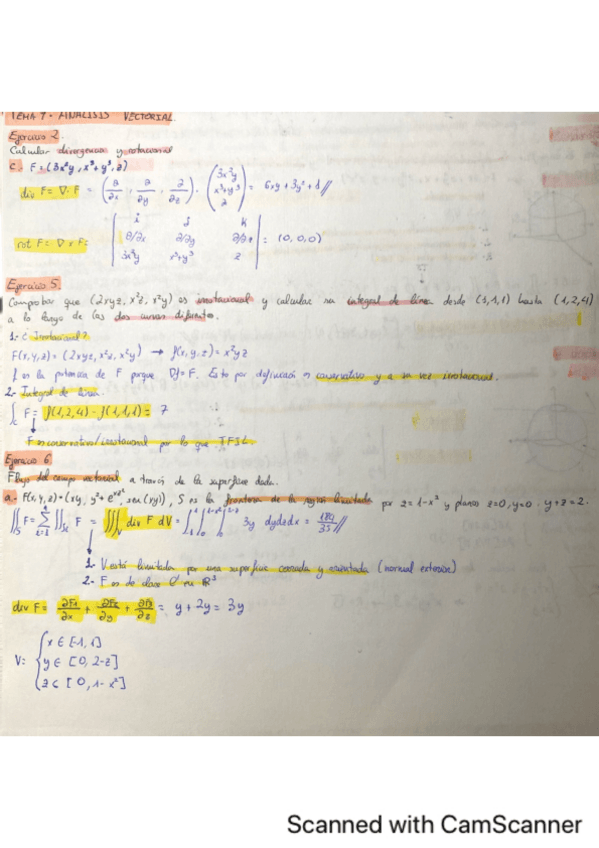 TEMA 7 - ANÁLISIS VECTORIAL
Ejercicio 2.
Calcular divergencia y rotacional
c. F = (3x²y, x³+y³, z)
div F = ∇·F = (∂/∂x, ∂/∂y, ∂/∂z) · (3x²y, x³+y³, z) = 6xy + 3y² + 1 //
rot F = ∇ x F = | i j k ; ∂/∂x ∂/∂y ∂/∂z ; 3x²y x³+y³ z | = (0,0,0)
Ejercicio 5.
Comprobar que (2xyz, x²z, x²y) es irrotacional y calcular su integral de línea desde (1,1,1) hasta (1,2,4)
a lo largo de las dos curvas diferentes.
1- ¿Irrotacional?
F(x,y,z) = (2xyz, x²z, x²y) → f(x,y,z) = x²yz
f es la potencia de F porque ∇f = F. Esto por definición es conservativo y a su vez irrotacional.
2- Integral de línea.
∫c F = f(1,2,4) - f(1,1,1) = 7
F es conservativo/irrotacional por lo que TFIL
Ejercicio 6
Flujo del campo vectorial a través de la superficie dada.
a. F(x,y,z) = (xy, y²+e^xz², sen(xy)), S es la frontera de la región limitada por z = 1-x² y planos z=0, y=0 y y+z=2.
∬s F = Σ ∬ F = ∭v div F dV = ∫∫∫ 3y dydzdx = 184/35 //
1- V está limitada por una superficie cerrada y orientada (normal exterior)
2- F es de clase C¹ en ℝ³
div F = ∂F₁/∂x + ∂F₂/∂y + ∂F₃/∂z = y + 2y = 3y
V: { x ∈ [-1, 1]
y ∈ [0, 2-z]
z ∈ [0, 1-x²]
Scanned with CamScanner